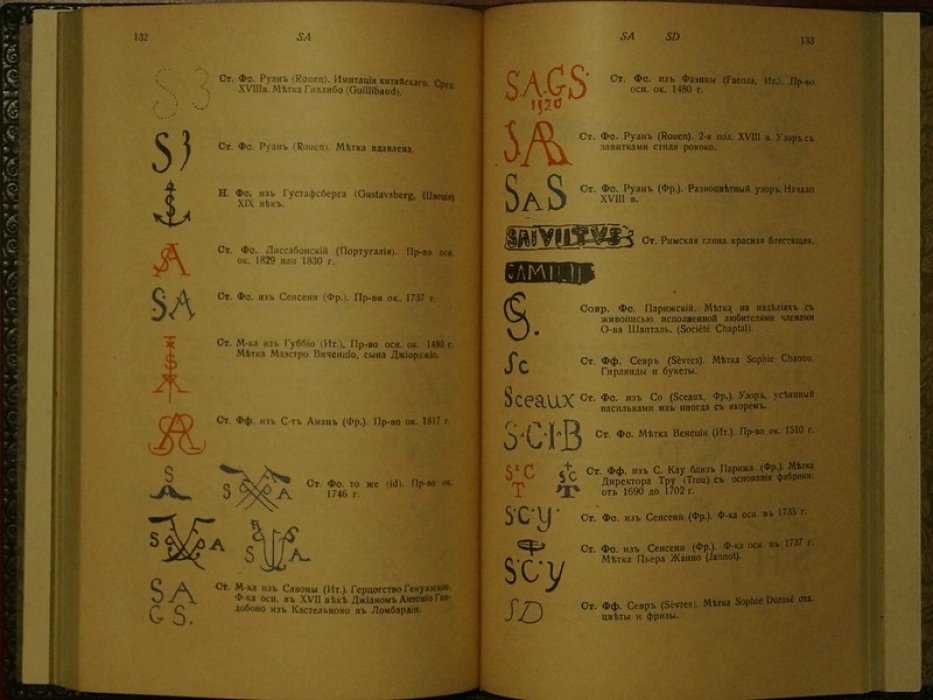 132
SA
S3
Ст. Фс. Руанъ (Rouen). Имитація китайскаго. Сред.
XVIIIв. Мѣтка Гиллибо (Guillibaud).
S3
Ст. Фс. Руанъ (Rouen). Мѣтка вдавлена.
S
Н. Фс. изъ Густафсберга (Gustavsberg, Швеція)
XIX вѣкъ.
SA
Ст. Фс. Лиссабонскій (Португалія). Пр-во осн.
ок. 1829 или 1830 г.
SA
Ст. Фс. изъ Сенсени (Фр.). Пр-во ок. 1737 г.
Ст. М-ка изъ Губбіо (Ит.). Пр-во осн. ок. 1480 г.
Мѣтка Маэстро Виченціо, сына Джіорджіо.
Ст. Фф. изъ С-тъ Аманъ (Фр.). Пр-во ок. 1817 г.
S
A
S A
Ст. Фс. то же (id). Пр-во ок.
1746 г.
S A
S A
S.A
G S.
Ст. М-ка изъ Савоны (Ит.). Герцогство Генуэзское.
Ф-ка осн. въ XVII вѣкѣ Джіаномъ Антоніо Гви-
добоно изъ Кастельново въ Ломбардіи.
SA SD
133
S.A.GS.
1520
Ст. Фс. изъ Фаэнцы (Faenza, Ит.). Пр-во
осн. ок. 1480 г.
SAB
Ст. Фс. Руанъ (Rouen). 2-я пол. XVIII в. Узоръ съ
завитками стиля рококо.
SAS
Ст. Фс. Руанъ (Фр.). Разноцвѣтный узоръ. Начало
XVIII в.
Ст. Римская глина, красная блестящая.
Совр. Фс. Парижскій. Мѣтка на издѣліяхъ съ
живописью исполненной любителями членами
О-ва Шапталь. (Société Chaptal).
Sc
Ст. Фф. Севръ (Sèvres). Мѣтка Sophie Chanou.
Гирлянды и букеты.
Sceaux
Ст. Фс. изъ Со (Sceaux, Фр.). Узоръ, усѣянный
васильками изъ иногда съ якоремъ.
S·C·I·B
Ст. Фс. Мѣтка Венеціи (Ит.). Пр-во ок. 1510 г.
S C
T
SC
T
Ст. Фф. изъ С. Клу близъ Парижа (Фр.). Мѣтка
Директора Тру (Trou) съ основанія фабрики:
отъ 1690 до 1702 г.
S·C·Y·
Ст. Фс. изъ Сенсени (Фр.). Ф-ка осн. въ 1735 г.
S·C·y
Ст. Фс. изъ Сенсени (Фр.). Ф-ка осн. въ 1737 г.
Мѣтка Пьера Жанно (Jannot).
SD
Ст. Фф. Севръ (Sèvres). Мѣтка Sophie Durosé отд.
цвѣты и фризы.